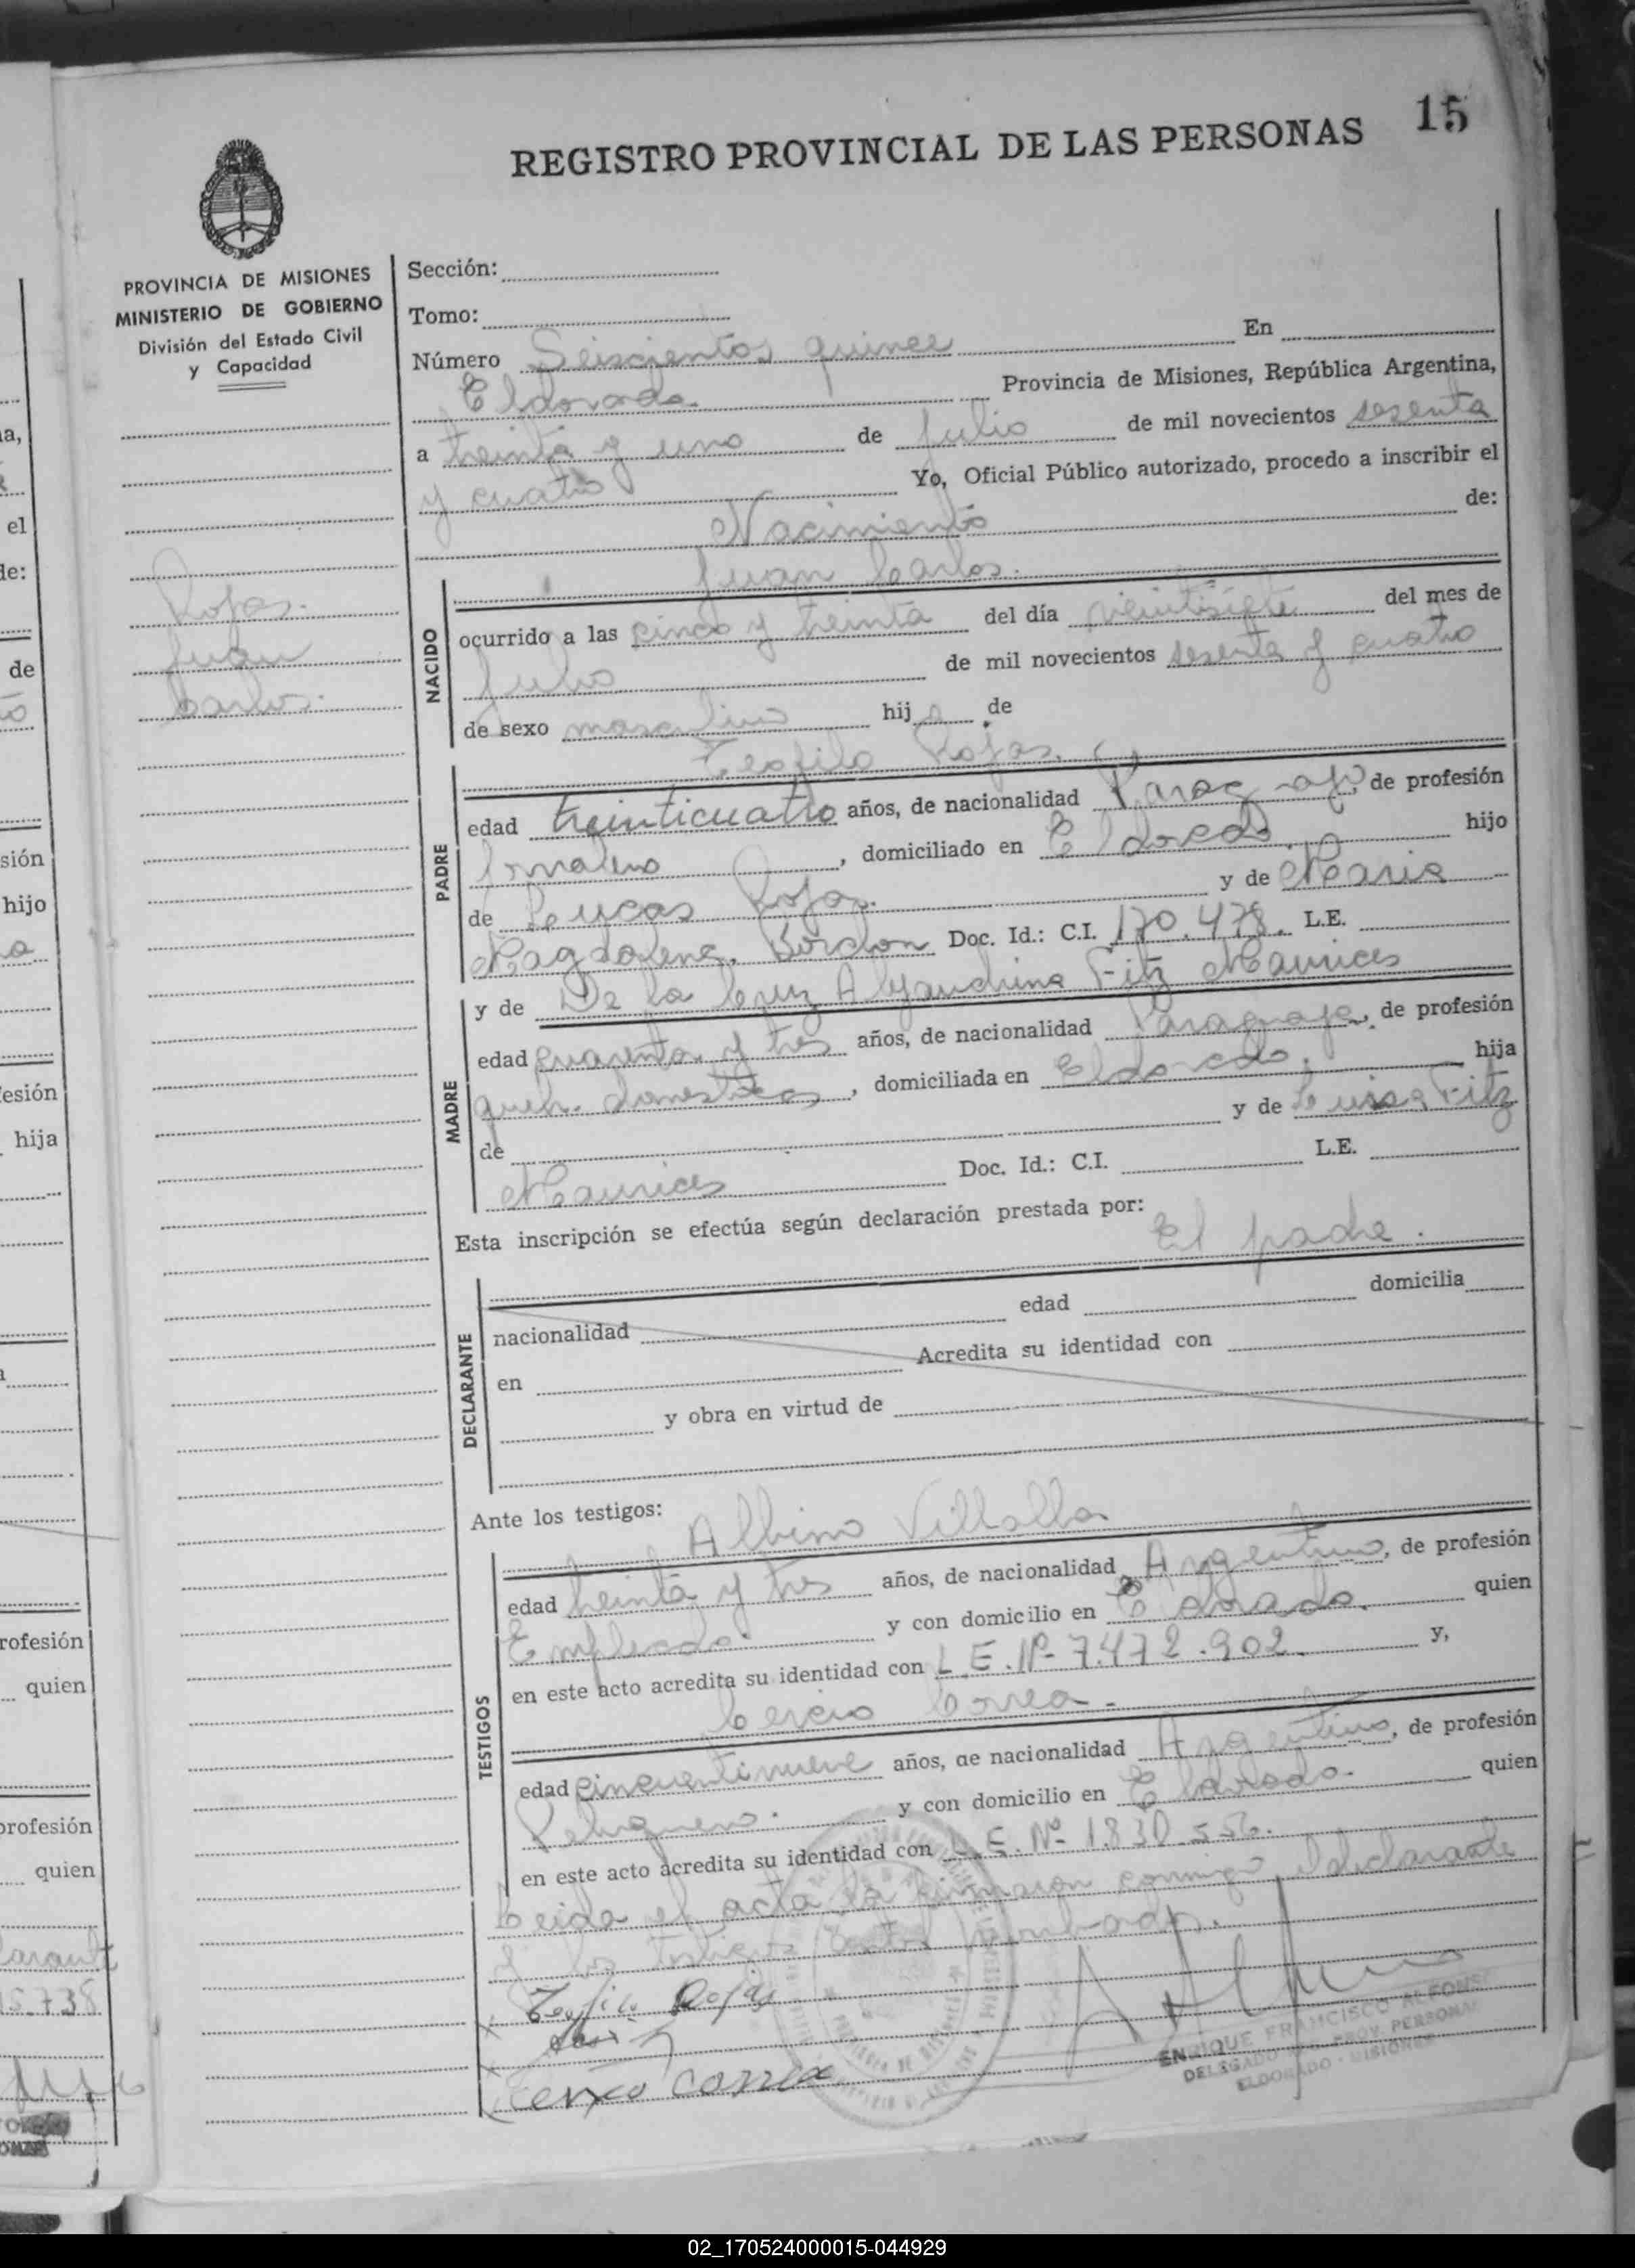 15
REGISTRO PROVINCIAL DE LAS PERSONAS
PROVINCIA DE MISIONES
MINISTERIO DE GOBIERNO
División del Estado Civil
y Capacidad
Rojas.
Juan
Carlos.
Sección:
Tomo:
Número Seiscientos quince En
Eldorado. Provincia de Misiones, República Argentina,
a treinta y uno de Julio de mil novecientos sesenta
y cuatro Yo, Oficial Público autorizado, procedo a inscribir el
Nacimiento de:
Juan Carlos.
NACIDO
ocurrido a las cinco y treinta del día veintisiete del mes de
Julio de mil novecientos sesenta y cuatro
de sexo masculino hijo de
Teofilo Rojas.
PADRE
edad treinticuatro años, de nacionalidad Paraguayo, de profesión
Jornalero, domiciliado en Eldorado. hijo
de Lucas Rojas. y de Maria
Magdalena. Doc. Id.: C.I. 170.478. L.E.
MADRE
y de De la Cruz Alejandrina Fitz Maurices
edad cuarenta y tres años, de nacionalidad Paraguaya, de profesión
queh. domesticos, domiciliada en Eldorado. hija
de y de Luisa Fitz
Maurices Doc. Id.: C.I. L.E.
Esta inscripción se efectúa según declaración prestada por:
El padre.
DECLARANTE
nacionalidad edad domicilia
en Acredita su identidad con
y obra en virtud de
Ante los testigos:
Albino Villalba
TESTIGOS
edad treinta y tres años, de nacionalidad Argentino, de profesión
Empleado. y con domicilio en Eldorado. quien
en este acto acredita su identidad con L.E. Nº 7.472.902. y,
Cercio Correa -
edad cincuentinueve años, de nacionalidad Argentino, de profesión
Peluquero. y con domicilio en Eldorado. quien
en este acto acredita su identidad con L.E. Nº 1.830.556.
Leida el acta la firmaron conmigo, el declarante
y los testigos nombrados.
Teofilo Rojas
Correa
ENRIQUE FRANCISCO ALFONSO
DELEGADO PROV. PERSONAS
ELDORADO - MISIONES
02_170524000015-044929